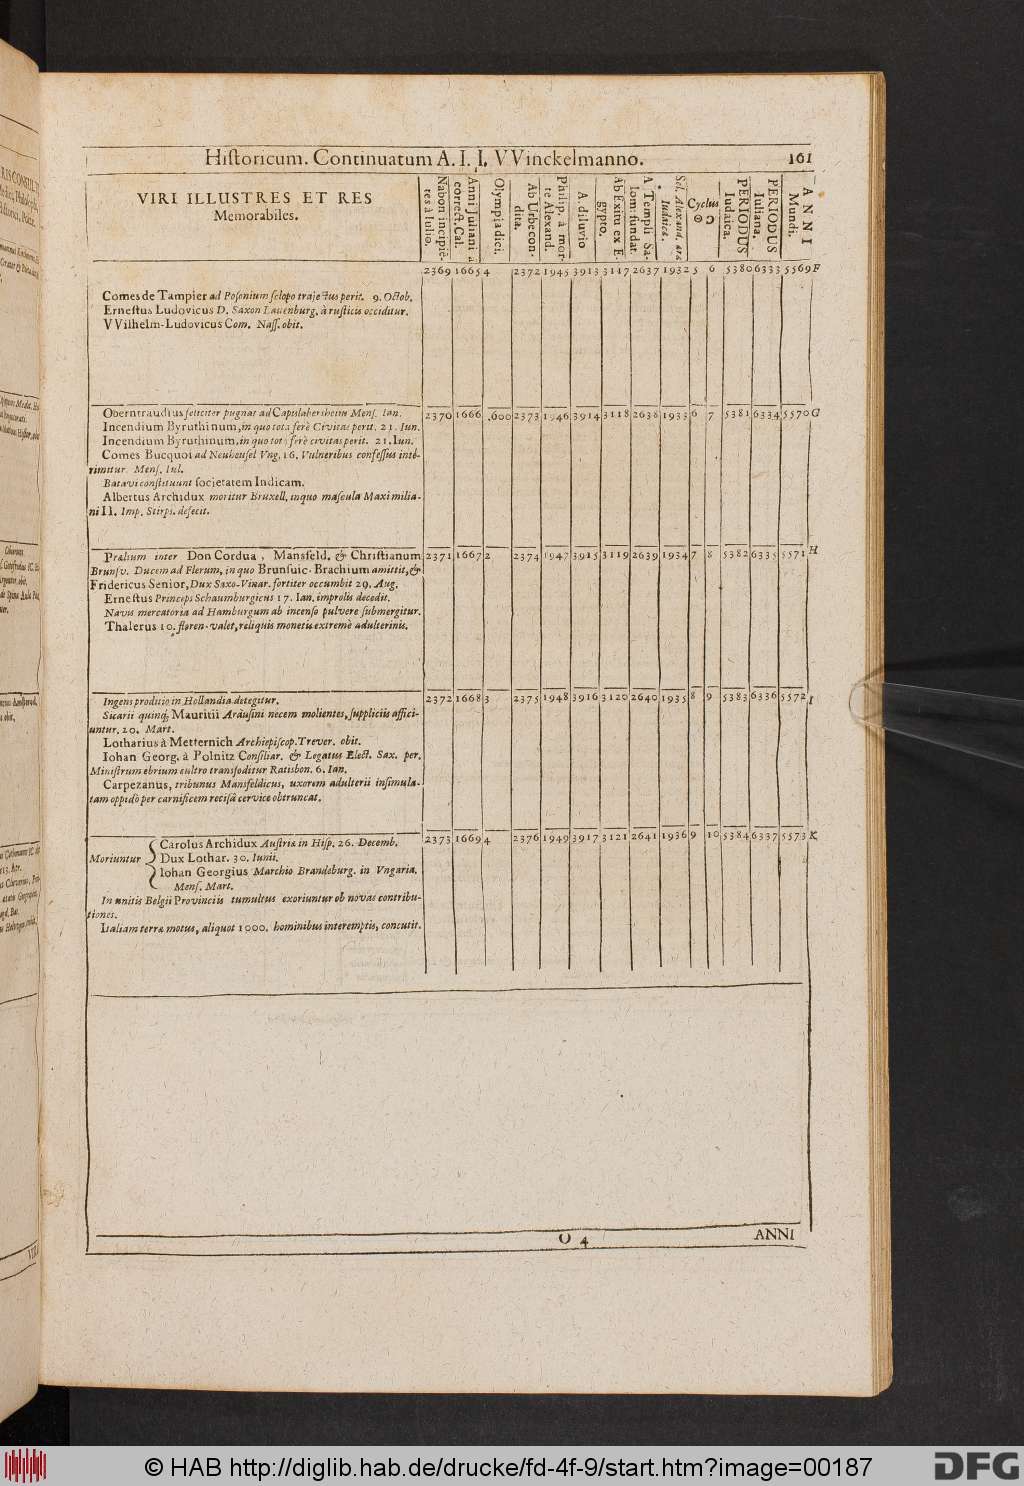 Hiſtoricum. Continuatum A. I. I. VVinckelmanno. 161
VIRI ILLUSTRES ET RES
Memorabiles.
Nabon incipiē-
tes à Iulio.
Anni Juliani à
correct. Cal.
Olympiadici.
Ab Urbe con-
dita.
Philip. à mor-
te Alexand.
A diluvio
Ab Exitu ex E-
gypto.
A Templi Sa-
lom. fundat.
Sel. Alexand. æra
Iudaica.
Cyclus
☉ ☽
PERIODUS
Iudaica.
PERIODUS
Iuliana.
ANNI
Mundi.
2369 1665 4 2372 1945 3913 3117 2637 1932 5 6 5380 6333 5569 F
Comes de Tampier ad Poſonium ſclopo trajectus perit. 9. Octob.
Erneſtus Ludovicus D. Saxon Lauenburg. à ruſticis occiditur.
VVilhelm-Ludovicus Com. Naſſ. obit.
Oberntraudius feliciter pugnat ad Capslabersheim Menſ. Ian. 2370 1666 .600 2373 1946 3914 3118 2638 1933 6 7 5381 6334 5570 G
Incendium Byruthinum, in quo tota ferè Civitas perit. 21. Iun.
Incendium Byruthinum, in quo tota ferè civitas perit. 21. Iun.
Comes Bucquoi ad Neuheuſel Vng. 16. Vulneribus confeſſus inte-
rimitur Menſ. Iul.
Batavi conſtituunt ſocietatem Indicam.
Albertus Archidux moritur Bruxell. in quo maſcula Maximilia-
ni II. Imp. Stirps. defecit.
Prælium inter Don Cordua, Mansfeld. & Chriſtianum 2371 1667 2 2374 1947 3915 3119 2639 1934 7 8 5382 6335 5571 H
Brunſv. Ducem ad Flerum, in quo Brunſuic. Brachium amittit, &
Fridericus Senior, Dux Saxo-Vinar. fortiter occumbit 29. Aug.
Erneſtus Princeps Schaumburgicus 17. Ian. improlis decedit.
Navis mercatoria ad Hamburgum ab incenſo pulvere ſubmergitur.
Thalerus 10. floren. valet, reliquis monetis extremè adulterinis.
Ingens proditio in Hollandia detegitur. 2372 1668 3 2375 1948 3916 3120 2640 1935 8 9 5383 6336 5572 I
Sicarii quinq; Mauritii Arauſini necem molientes, ſuppliciis affici-
untur. 20. Mart.
Lotharius à Metternich Archiepiſcop. Trever. obit.
Iohan Georg. à Polnitz Conſiliar. & Legatus Elect. Sax. per.
Miniſtrum ebrium cultro transfoditur Ratisbon. 6. Ian.
Carpezanus, tribunus Mansfeldicus, uxorem adulterii inſimula-
tam oppidò per carnificem reciſâ cervice obtruncat.
Carolus Archidux Auſtriæ in Hiſp. 26. Decemb. 2373 1669 4 2376 1949 3917 3121 2641 1936 9 10 5384 6337 5573 K
Moriuntur Dux Lothar. 30. Iunii.
Iohan Georgius Marchio Brandeburg. in Vngaria.
Menſ. Mart.
In unitis Belgii Provinciis tumultus exoriuntur ob novas contribu-
tiones.
Italiam terræ motus, aliquot 1000. hominibus interemptis, concutit.
O 4 ANNI
© HAB http://diglib.hab.de/drucke/fd-4f-9/start.htm?image=00187
DFG